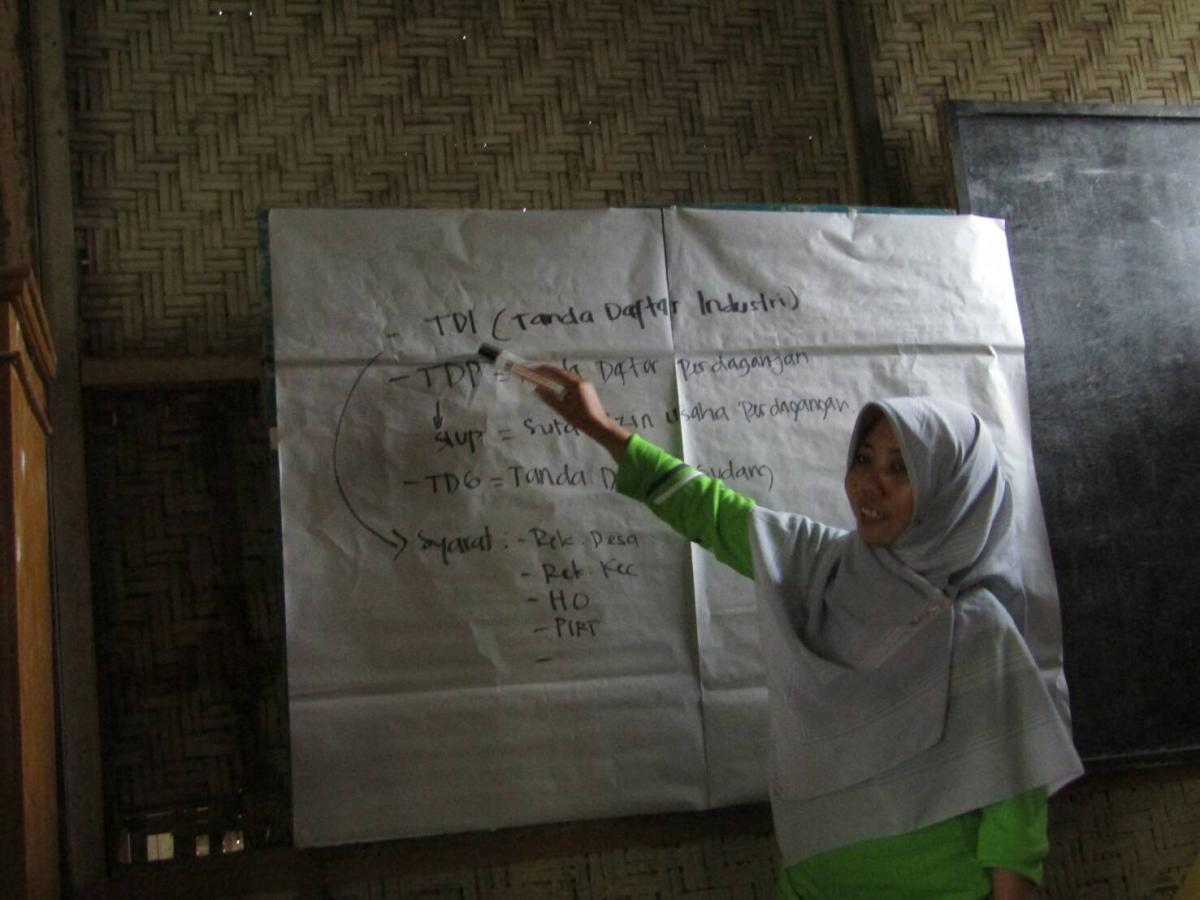 - TDI (Tanda Daftar Industri)
- TDP = Daftar Perdaganjan
SIUP = Surat izin usaha Perdagangan.
- TDG = Tanda Gudang
Syarat : - Rek. Desa
- Rek. Kec
- HO
- PIRT
-